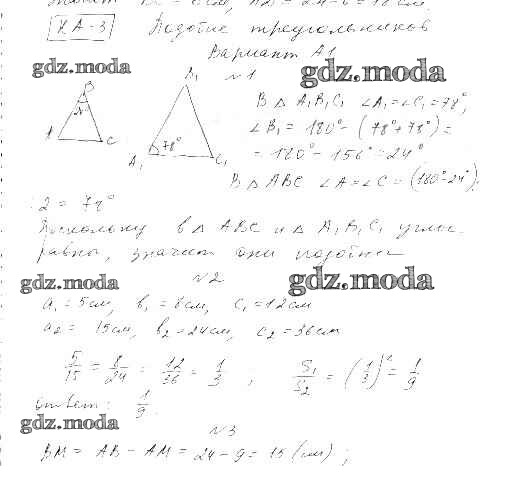 = 24-6 = 18 см.
КА-3 Подобие треугольников
Вариант А1
gdz.moda
№1
gdz.moda
B
A C
B₁
A₁ 78° C₁
В △ A₁B₁C₁ ∠A₁=∠C₁=78°,
∠B₁ = 180°-(78°+78°)=
= 180°-156°=24°
В △ ABC ∠A=∠C=(180°-24°):
:2 = 78°
Поскольку в △ ABC и △ A₁B₁C₁ углы
равны, значит они подобны
gdz.moda
№2
gdz.moda
a₁ = 5см, b₁ = 8см, c₁ = 12см
a₂ = 15см, b₂ = 24см, c₂ = 36см
5/15 = 8/24 = 12/36 = 1/3 ; S₁/S₂ = (1/3)² = 1/9
ответ: 1/9.
gdz.moda
№3
BM = AB - AM = 24 - 9 = 15 (см);